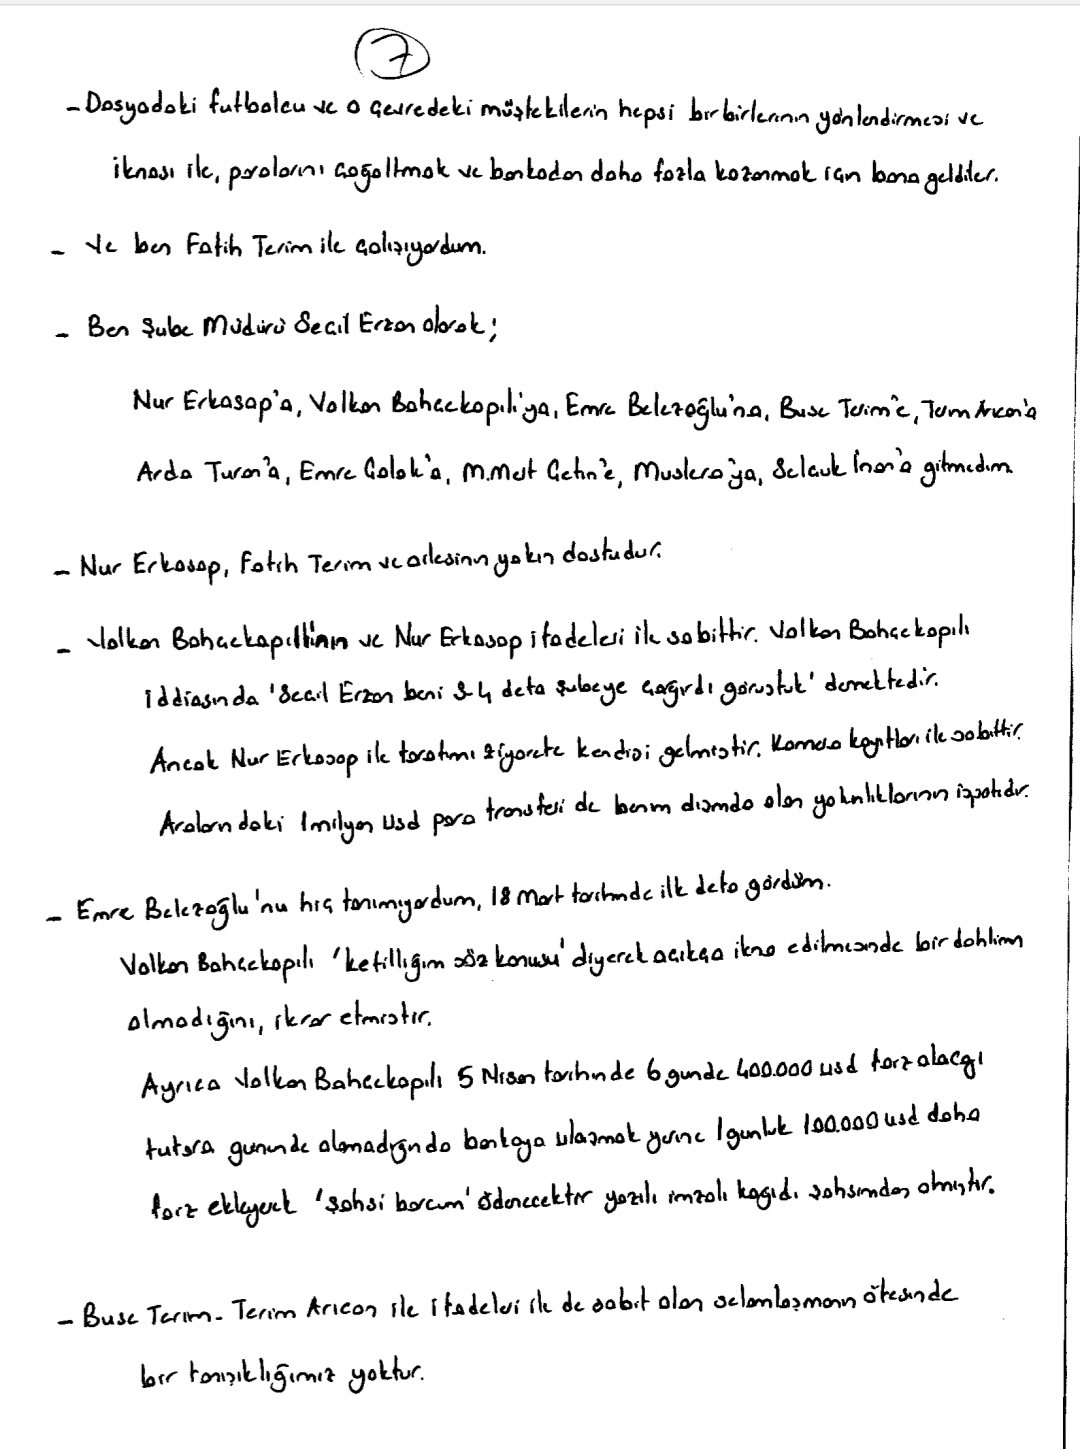 7
- Dosyadaki futbolcu ve o çevredeki müştekilerin hepsi birbirlerinin yönlendirmesi ve
iknası ile, paralarını çoğaltmak ve bankadan daha fazla kazanmak için bana geldiler.
- Ve ben Fatih Terim ile çalışıyordum.
- Ben Şube Müdürü Seçil Erzan olarak;
Nur Erkasap'a, Volkan Bahçekapılı'ya, Emre Belezoğlu'na, Buse Terim'e, Terim Arıcan'a
Arda Turan'a, Emre Çolak'a, M.Mert Çetin'e, Muslera'ya, Selçuk İnan'a gitmedim
- Nur Erkasap, Fatih Terim ve ailesinin yakın dostudur.
- Volkan Bahçekapılı'nın ve Nur Erkasap ifadeleri ile sabittir. Volkan Bahçekapılı
iddiasında 'Seçil Erzan beni 3-4 defa şubeye çağırdı görüştük' demektedir.
Ancak Nur Erkasap ile tarafımı ziyarete kendisi gelmiştir. Kamera kayıtları ile sabittir.
Aralarındaki 1 milyon usd para transferi de benim dışımda olan yakınlıklarının ispatıdır.
- Emre Belezoğlu'nu hiç tanımıyordum, 18 Mart tarihinde ilk defa gördüm.
Volkan Bahçekapılı 'kefilliğim söz konusu' diyerek açıkça ikna edilmesinde bir dahlimin
olmadığını, ikrar etmiştir.
Ayrıca Volkan Bahçekapılı 5 Nisan tarihinde 6 günde 400.000 usd farz alacağı
tutara gününde alamadığında bankaya ulaşmak yerine 1 günlük 100.000 usd daha
farz ekleyerek 'şahsi borcum' ödenecektir yazılı imzalı kağıdı şahsımdan almıştır.
- Buse Terim - Terim Arıcan ile ifadeleri ile de sabit olan selamlaşmanın ötesinde
bir tanışıklığımız yoktur.